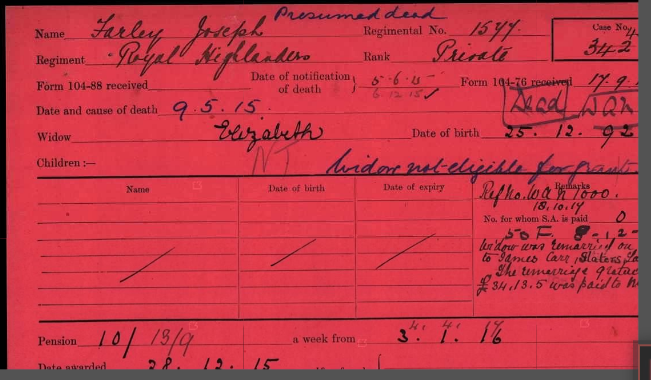 Presumed dead
Name Farley Joseph Regimental No. 1577. Case No.
Regiment Royal Highlanders Rank Private 342
Form 104-88 received Date of notification of death 5.6.15 6.12.15 Form 104-76 received 17.9.
Date and cause of death 9.5.15. Dead
Widow Elizabeth Date of birth 25.12.92
Children :— NT Widow not eligible for grant.
Name Date of birth Date of expiry Remarks
Ref No. WAR 1000.
18.10.17
No. for whom S.A. is paid 0
50 F. 8-12-
Widow was remarried on
to James Carr, Slaters,
The remarriage
£34.13.5 was paid to
Pension 10/ 13/9 a week from 3. 1. 16
Date awarded 28.12.15